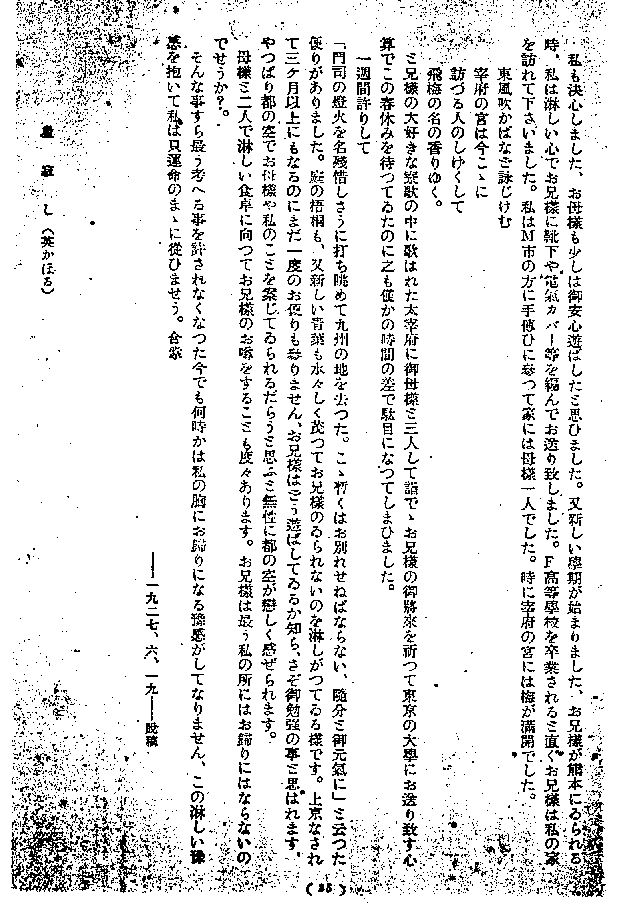 私も決心しました、お母様も少しは御安心遊ばしたと思ひました。又新しい學期が始まりました、お兄様が熊本にゐられる
時、私は淋しい心でお兄様に靴下や電氣カバー等を編んでお送り致しました。F高等學校を卒業されると直ぐお兄様は私の家
を訪れて下さいました。私はM市の方に手傳ひに參つて家には母様一人でした。時に宰府の宮には梅が滿開でした。
東風吹かばなど詠じけむ
宰府の宮は今こゝに
訪づる人のしけくして
飛梅の名の香りゆく。
と兄様の大好きな寮歌の中に歌はれた太宰府に御母様と三人して詣でゝお兄様の御將來を祈つて東京の大學にお送り致す心
算でこの春休みを待つてゐたのに之も僅かの時間の差で駄目になつてしまひました。
一週間許りして
「門司の燈火を名殘惜しさうに打ち眺めて九州の地を去つた。こゝ暫くはお別れせねばならない、隨分と御元氣に」と云つた
便りがありました。庭の梧桐も、又新しい青葉も水々しく茂つてお兄様のゐられないのを淋しがつてゐる様です。上京なされ
て三ケ月以上にもなるのにまだ一度のお便りも參りません、お兄様はどう遊ばしてゐるか知ら、さぞ御勉強の事と思はれます。
やつぱり都の空でお母様や私のことを案じてゐられるだらうと思ふと無性に都の空が戀しく感ぜられます。
母様と二人で淋しい食卓に向つてお兄様のお噂をすることも度々あります。お兄様は最う私の所にはお歸りにはならないの
でせうか？。
そんな事すら最う考へる事を許されなくなつた今でも何時かは私の胸にお歸りになる豫感がしてなりません、この淋しい豫
感を抱いて私は只運命のまゝに從ひませう。合掌
――一九二七、六、一九――脫稿
し（英かほる）
(35)